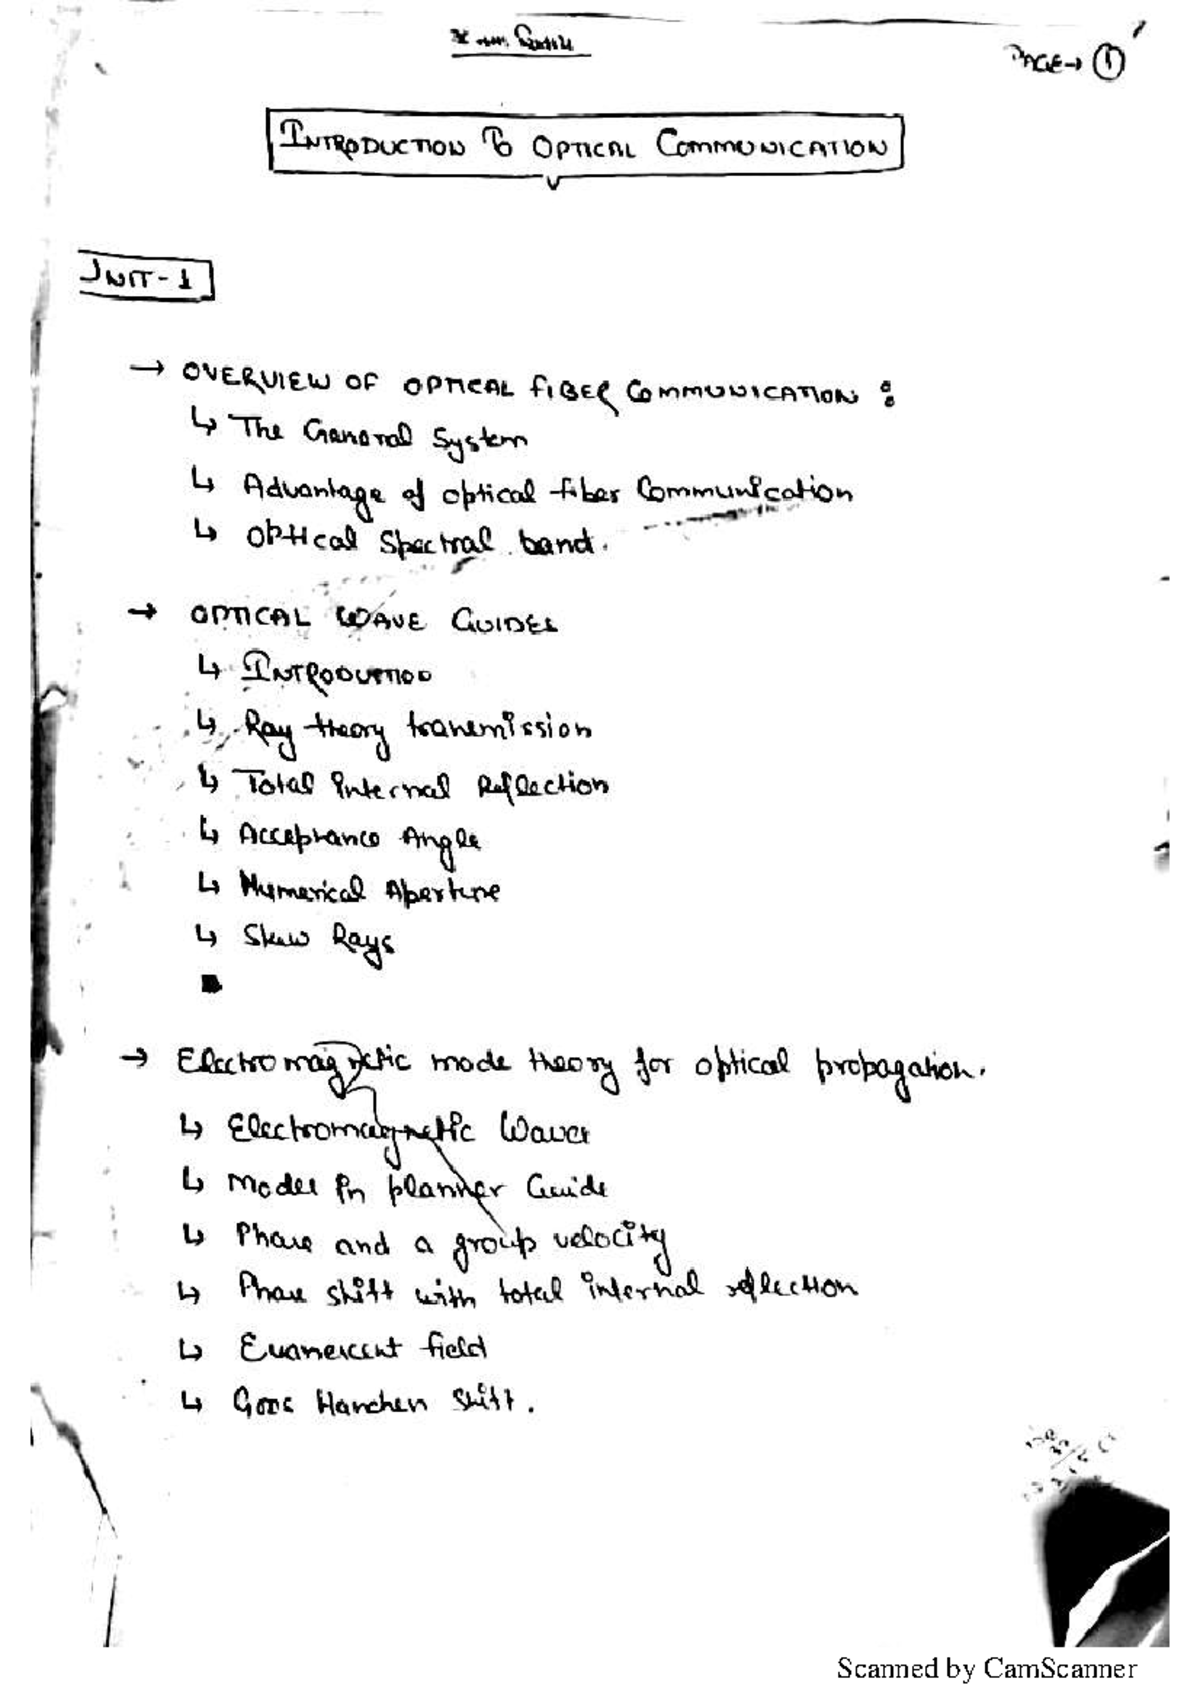 PAGE→ 1
INTRODUCTION TO OPTICAL COMMUNICATION
UNIT-1
→ OVERVIEW OF OPTICAL FIBER COMMUNICATION :
↳ The General System
↳ Advantage of optical fiber Communication
↳ Optical Spectral band.
→ OPTICAL WAVE GUIDES
↳ INTRODUCTION
↳ Ray theory transmission
↳ Total internal Reflection
↳ Acceptance Angle
↳ Numerical Aperture
↳ Skew Rays
→ Electromagnetic mode theory for optical propagation.
↳ Electromagnetic Waves
↳ Modes in planner Guide
↳ Phase and a group velocity
↳ Phase shift with total internal reflection
↳ Evanescent field
↳ Goos Hanchen Shift.
Scanned by CamScanner